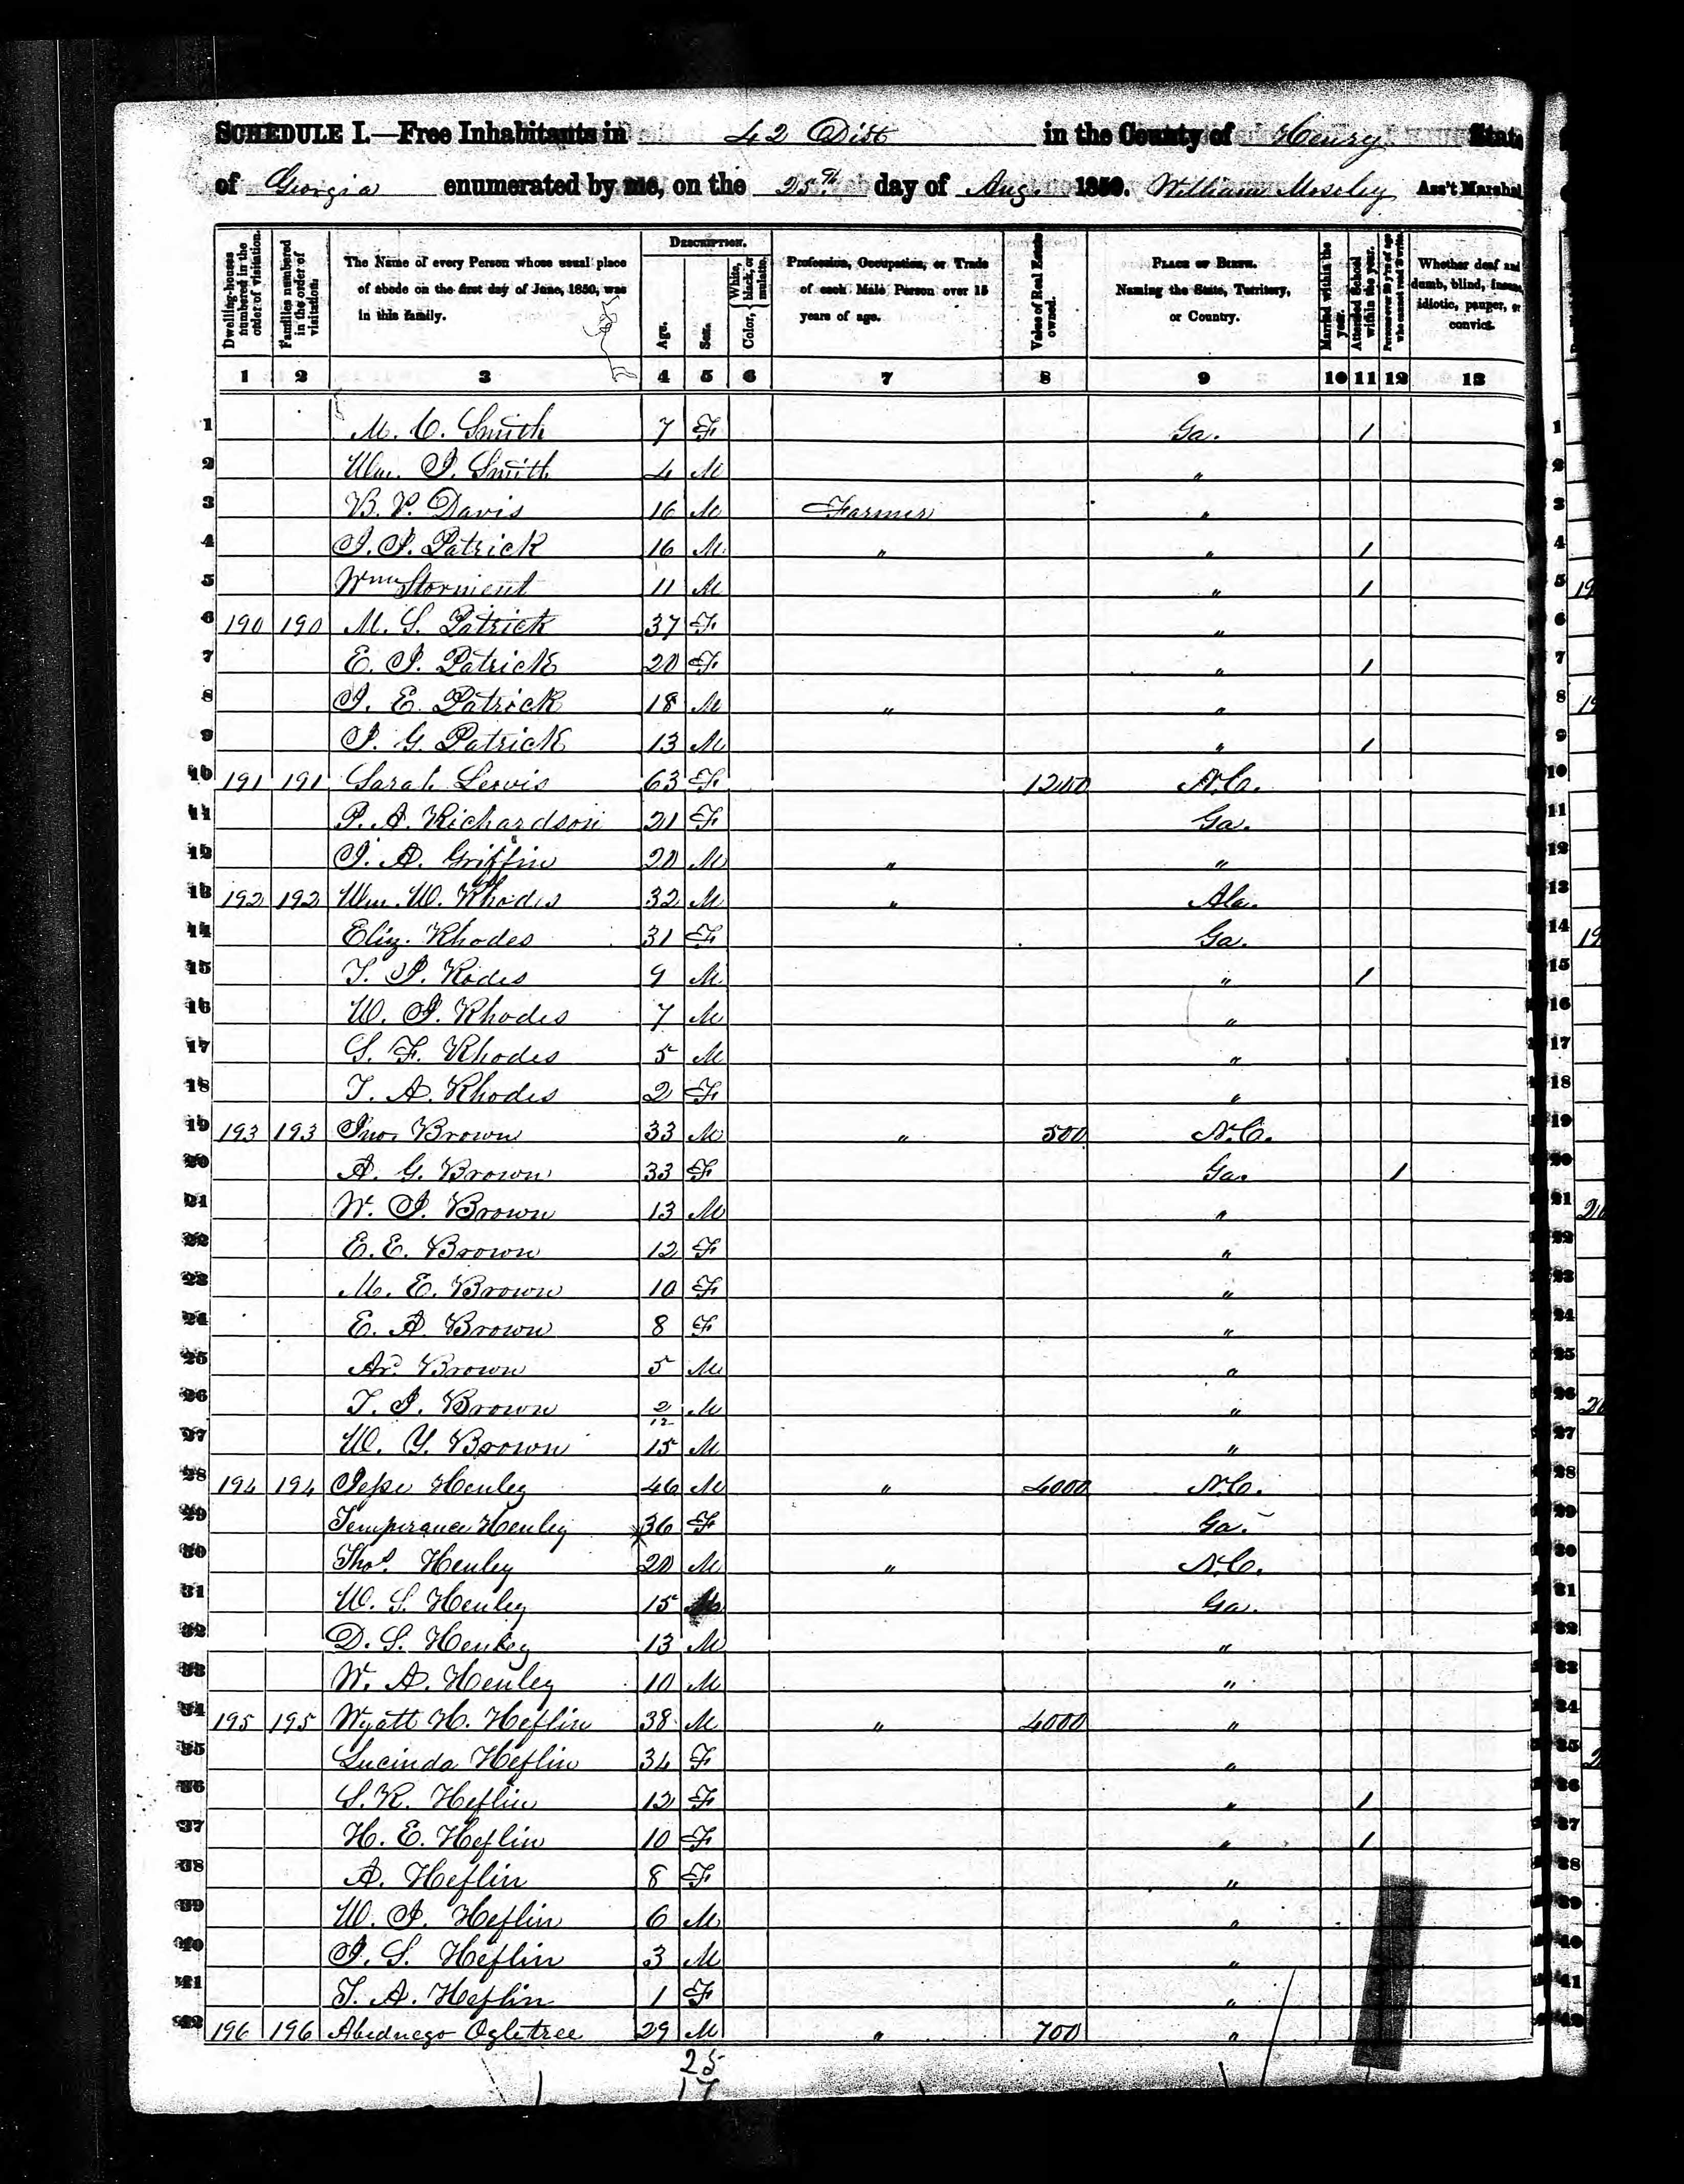 SCHEDULE I.—Free Inhabitants in 42 Dist in the County of Henry State
of Georgia enumerated by me, on the 25th day of Aug. 1850. William Moseley Ass't Marshal
Dwelling-houses numbered in the order of visitation.
Families numbered in the order of visitation.
The Name of every Person whose usual place of abode on the first day of June, 1850, was in this family.
DESCRIPTION.
Age.
Sex.
Color, White, black, or mulatto.
Profession, Occupation, or Trade of each Male Person over 15 years of age.
Value of Real Estate owned.
PLACE OF BIRTH. Naming the State, Territory, or Country.
Married within the year.
Attended School within the year.
Persons over 20 y'rs of age who cannot read & write.
Whether deaf and dumb, blind, insane, idiotic, pauper, or convict.
1 2 3 4 5 6 7 8 9 10 11 12 13
1 M. C. Smith 7 F Ga. 1 1
2 Wm. J. Smith 4 M " 2
3 B. P. Davis 16 M Farmer " 3
4 J. J. Patrick 16 M " " 1 4
5 Wm Storment 11 M " 1 5
6 190 190 M. S. Patrick 37 F " 6
7 E. J. Patrick 20 F " 1 7
8 J. E. Patrick 18 M " " 8
9 J. G. Patrick 13 M " 1 9
10 191 191 Sarah Lewis 63 F 1200 N.C. 10
11 P. A. Richardson 21 F Ga. 11
12 J. A. Griffin 20 M " " 12
13 192 192 Wm. W. Rhodes 32 M " Ala. 13
14 Eliz. Rhodes 31 F Ga. 14
15 T. J. Rodes 9 M " 1 15
16 W. J. Rhodes 7 M " 16
17 S. F. Rhodes 5 M " 17
18 T. A. Rhodes 2 F " 18
19 193 193 Jno. Brown 33 M " 500 N.C. 19
20 A. G. Brown 33 F Ga. 1 20
21 W. J. Brown 13 M " 21
22 E. E. Brown 12 F " 22
23 M. E. Brown 10 F " 23
24 E. A. Brown 8 F " 24
25 Brown 5 M " 25
26 T. J. Brown 2/12 M " 26
27 W. Y. Brown 15 M " 27
28 194 194 Jesse Henley 46 M " 4000 N.C. 28
29 Temperance Henley 36 F Ga. 29
30 Thos. Henley 20 M " N.C. 30
31 W. S. Henley 15 M Ga. 31
32 D. S. Henley 13 M " 32
33 W. A. Henley 10 M " 33
34 195 195 Wyatt H. Heflin 38 M " 4000 " 34
35 Lucinda Heflin 34 F " 35
36 S. R. Heflin 12 F " 1 36
37 H. E. Heflin 10 F " 1 37
38 A. Heflin 8 F " 38
39 W. J. Heflin 6 M " 39
40 J. S. Heflin 3 M " 40
41 T. A. Heflin 1 F " 41
42 196 196 Abednego Ogletree 29 M " 700 " 42
25
17